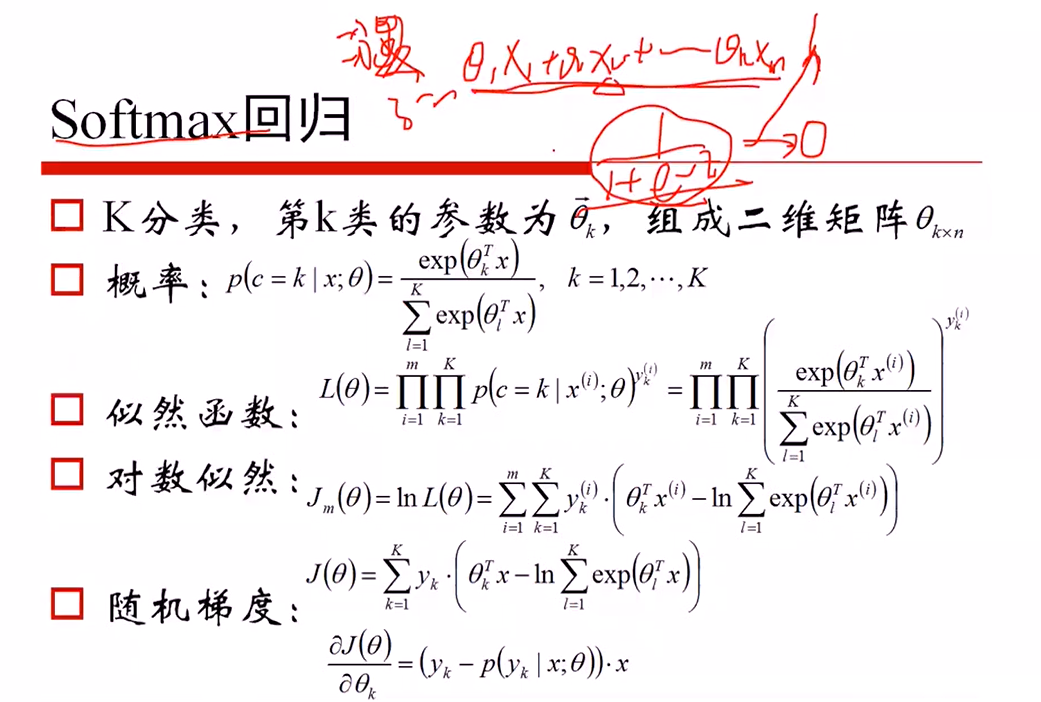 θ₁x₁+θ₂x₂+⋯θₙxₙ
Softmax回归
1/(1+e^-z) → 0
K分类，第k类的参数为θ⃗_k，组成二维矩阵θ_{k×n}
概率：p(c=k|x;θ)=exp(θ_k^T x)/∑_{l=1}^{K} exp(θ_l^T x), k=1,2,⋯,K
似然函数：L(θ)=∏_{i=1}^{m}∏_{k=1}^{K} p(c=k|x^{(i)};θ)^{y_k^{(i)}}=∏_{i=1}^{m}∏_{k=1}^{K}(exp(θ_k^T x^{(i)})/∑_{l=1}^{K} exp(θ_l^T x^{(i)}))^{y_k^{(i)}}
对数似然：J_m(θ)=ln L(θ)=∑_{i=1}^{m}∑_{k=1}^{K} y_k^{(i)}·(θ_k^T x^{(i)}−ln∑_{l=1}^{K} exp(θ_l^T x^{(i)}))
J(θ)=∑_{k=1}^{K} y_k·(θ_k^T x−ln∑_{l=1}^{K} exp(θ_l^T x))
随机梯度：
∂J(θ)/∂θ_k=(y_k−p(y_k|x;θ))·x